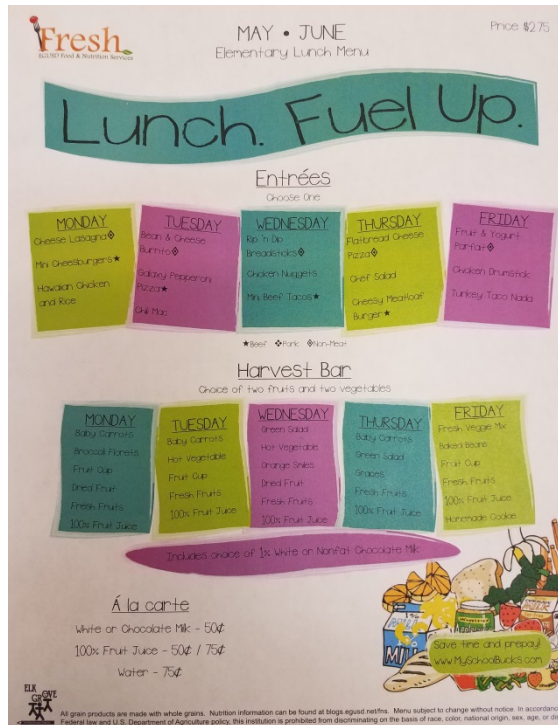 Fresh
EGUSD Food & Nutrition Services
MAY • JUNE
Elementary Lunch Menu
Price $2.75
Lunch. Fuel Up.
Entrées
Choose One
MONDAY
Cheese Lasagna
Mini Cheesburgers★
Hawaiian Chicken
and Rice
TUESDAY
Bean & Cheese
Burrito
Galaxy Pepperoni
Pizza★
Chili Mac
WEDNESDAY
Rip 'n Dip
Breadsticks
Chicken Nuggets
Mini Beef Tacos★
THURSDAY
Flatbread Cheese
Pizza
Chef Salad
Cheesy Meatloaf
Burger★
FRIDAY
Fruit & Yogurt
Parfait
Chicken Drumstick
Turkey Taco Nada
★Beef ❖Pork Non-Meat
Harvest Bar
Choice of two fruits and two vegetables
MONDAY
Baby Carrots
Broccoli Florets
Fruit Cup
Dried Fruit
Fresh Fruits
100% Fruit Juice
TUESDAY
Baby Carrots
Hot Vegetable
Fruit Cup
Fresh Fruits
100% Fruit Juice
WEDNESDAY
Green Salad
Hot Vegetable
Orange Smiles
Dried Fruit
Fresh Fruits
100% Fruit Juice
THURSDAY
Baby Carrots
Green Salad
Grapes
Fresh Fruits
100% Fruit Juice
FRIDAY
Fresh Veggie Mix
Baked Beans
Fruit Cup
Fresh Fruits
100% Fruit Juice
Homemade Cookie
Includes choice of 1% White or Nonfat Chocolate Milk
Á la carte
White or Chocolate Milk - 50¢
100% Fruit Juice - 50¢ / 75¢
Water - 75¢
MILK
Save time and prepay!
www.MySchoolBucks.com
ELK
GROVE
All grain products are made with whole grains. Nutrition information can be found at blogs.egusd.net/fns. Menu subject to change without notice. In accordance
Federal law and U.S. Department of Agriculture policy, this institution is prohibited from discriminating on the basis of race, color, national origin, sex, age, or